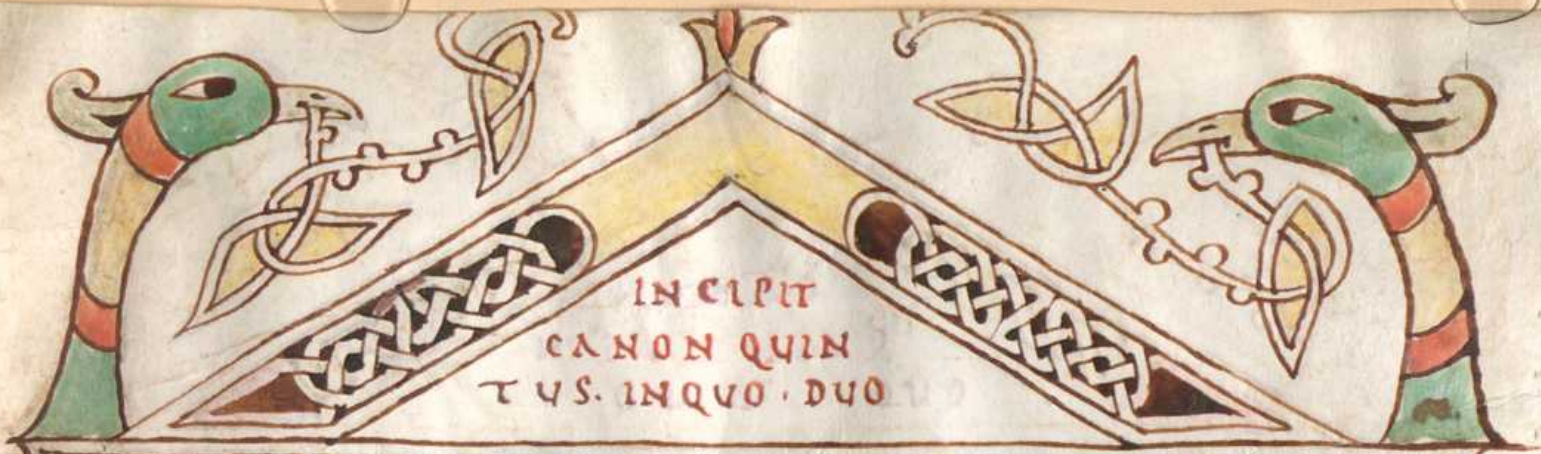 INCIPIT
CANON QUIN
TUS. INQUO · DUO